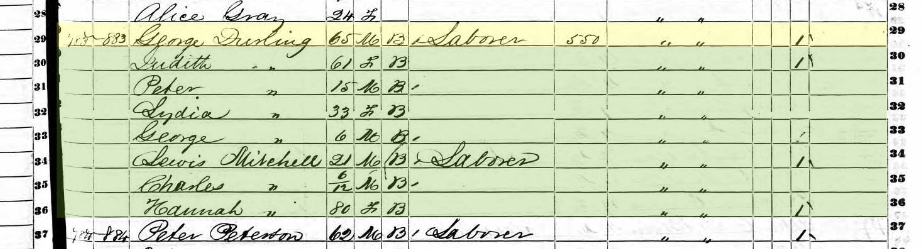 28 Alice Gray 24 F " " 28
29 883 George Durling 65 M B Laborer 550 " " 1 29
30 Judith " 61 F B " " 1 30
31 Peter " 15 M B " " 31
32 Lydia " 33 F B " " 32
33 George " 6 M B " " 33
34 Lewis Mitchell 21 M B Laborer " " 1 34
35 Charles " 6/12 M B " " 35
36 Hannah " 80 F B " " 1 36
37 884 Peter Peterson 62 M B Laborer " " 1 37